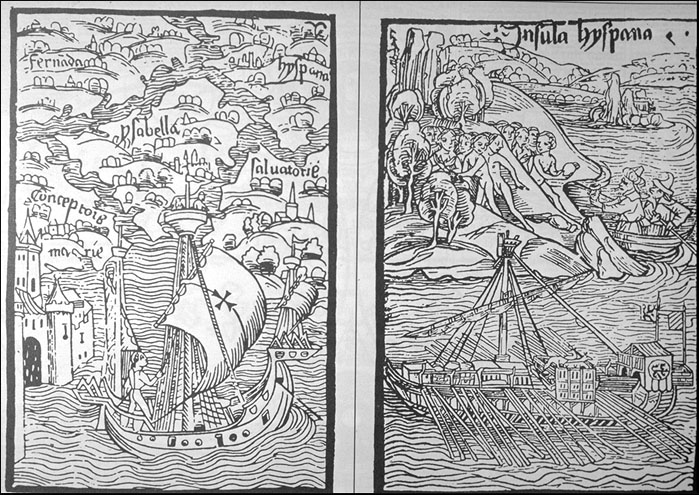 fernada
hyspana
ysabella
salvatorie
conceptoie
marie
Insula hyspana